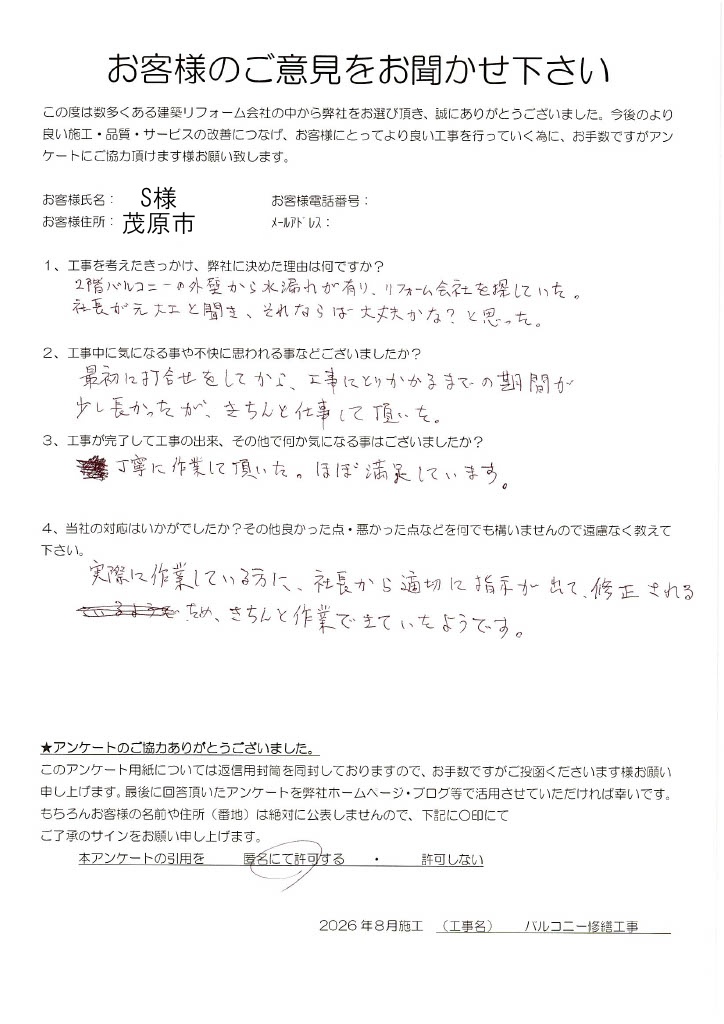 お客様のご意見をお聞かせ下さい
この度は数多くある建築リフォーム会社の中から弊社をお選び頂き、誠にありがとうございました。今後のより
良い施工・品質・サービスの改善につなげ、お客様にとってより良い工事を行っていく為に、お手数ですがアン
ケートにご協力頂けます様お願い致します。
お客様氏名： S様 お客様電話番号：
お客様住所： 茂原市 ﾒｰﾙｱﾄﾞﾚｽ：
１、工事を考えたきっかけ、弊社に決めた理由は何ですか？
2階バルコニーの外壁から水漏れが有り、リフォーム会社を探していた。
社長が元大工と聞き、それならば大丈夫かな？と思った。
２、工事中に気になる事や不快に思われる事などございましたか？
最初に打合せをしてから、工事にとりかかるまでの期間が
少し長かったが、きちんと仕事して頂いた。
３、工事が完了して工事の出来、その他で何か気になる事はございましたか？
丁寧に作業して頂いた。ほぼ満足しています。
４、当社の対応はいかがでしたか？その他良かった点・悪かった点などを何でも構いませんので遠慮なく教えて
下さい。
実際に作業している方に、社長から適切に指示が出て、修正される
ため、きちんと作業できていたようです。
★アンケートのご協力ありがとうございました。
このアンケート用紙については返信用封筒を同封しておりますので、お手数ですがご投函くださいます様お願い
申し上げます。最後に回答頂いたアンケートを弊社ホームページ・ブログ等で活用させていただければ幸いです。
もちろんお客様の名前や住所（番地）は絶対に公表しませんので、下記に〇印にて
ご了承のサインをお願い申し上げます。
本アンケートの引用を 匿名にて許可する ・ 許可しない
2026年8月施工 （工事名） バルコニー修繕工事